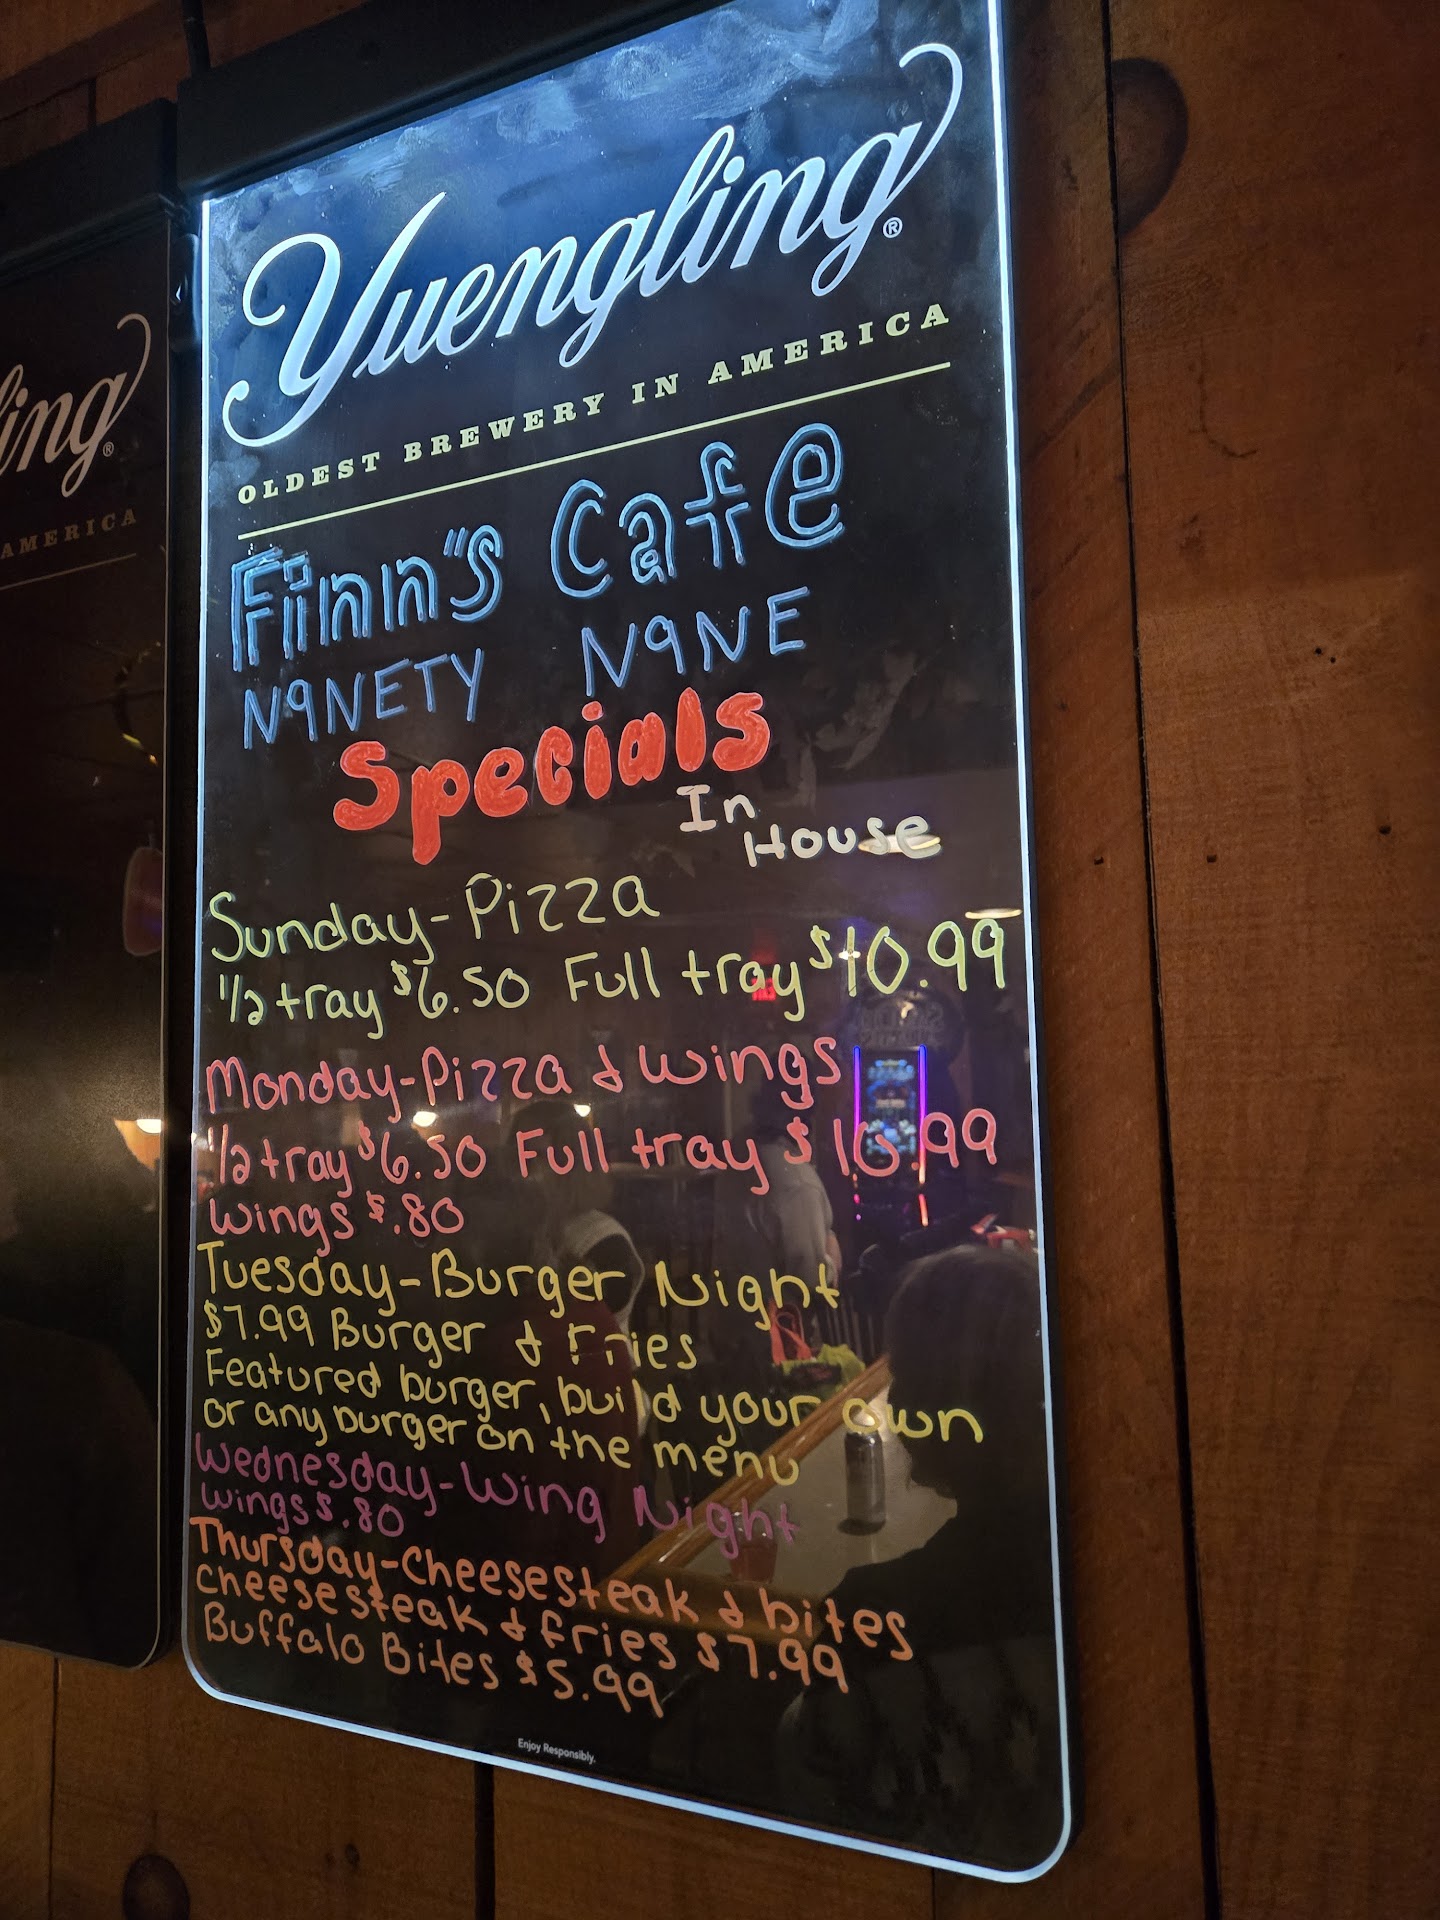 Yuengling®
OLDEST BREWERY IN AMERICA
Finn"s Cafe
N9NETY N9NE
Specials
In
House
Sunday-Pizza
1/2 tray $6.50 Full tray $10.99
Monday-Pizza & Wings
1/2 tray $6.50 Full tray $10.99
Wings $.80
Tuesday-Burger Night
$7.99 Burger & Fries
Featured burger, build your own
or any burger on the menu
Wednesday-Wing Night
Wings $.80
Thursday-Cheesesteak & bites
cheesesteak & fries $7.99
Buffalo Bites $5.99
Enjoy Responsibly.
ling®
AMERICA